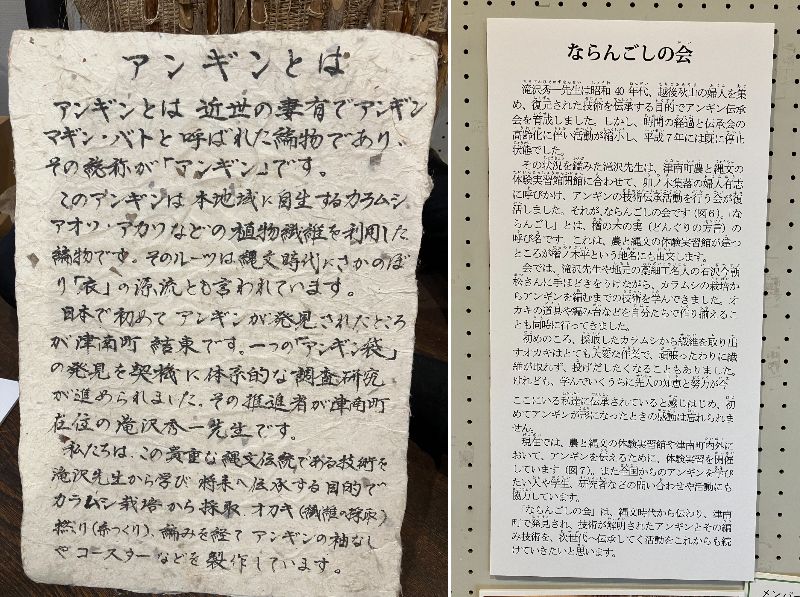 アンギンとは
アンギンとは 近世の妻有でアンギン
マギン・バトと呼ばれた編物であり、
その総称が「アンギン」です。
このアンギンは 本地域に自生するカラムシ
アオソ・アカソなどの植物繊維を利用した
編物です。そのルーツは縄文時代にさかのぼ
り「衣」の源流とも言われています。
日本で初めて アンギンが発見されたところ
が津南町 結東です。一つの「アンギン袋」
の発見を契機に体系的な調査研究
が進められました。その推進者が津南町
在住の滝沢秀一先生です。
私たちは、この貴重な縄文伝統である技術を
滝沢先生から学び 将来へ伝承する目的で
カラムシ栽培から採取、オカキ(繊維の採取)
撚り(糸つくり)、編みを経て アンギンの袖なし
や コースターなどを製作しています。
ならんごしの会
滝沢秀一先生は昭和40年代、越後秋山の婦人を集
め、復元された技術を伝承する目的でアンギン伝承
会を育成しました。しかし、時間の経過と伝承会の
高齢化に伴い活動が縮小し、平成7年には既に停止
状態でした。
その状況を鑑みた滝沢先生は、津南町農と縄文の
体験実習館開館に合わせて、卯ノ木集落の婦人有志
に呼びかけ、アンギンの技術伝承活動を行う会が復
活しました。それが、ならんごしの会です(図6)。「な
らんごし」とは、楢の木の実(どんぐりの方言)の
呼び名です。これは、農と縄文の体験実習館が建つ
ところが楢ノ木平という地名にも由来します。
会では、滝沢先生や地元の藁細工名人の石沢今朝
松さんに手ほどきをうけながら、カラムシの栽培か
らアンギンを編むまでの技術を学んできました。オ
カキの道具や編み台などを自分たちで作り揃えるこ
とも同時に行ってきました。
初めのころ、採取したカラムシから繊維を取り出
すオカキはとても大変な作業で、頑張ったわりに繊
維が取れず、投げだしたくなることもありました。
けれども、学んでいくうちに先人の知恵と努力が今
ここにいる私達に伝承されていると感じはじめ、初
めてアンギンが形になったときの感動は忘れられま
せん。
現在では、農と縄文の体験実習館や津南町内外に
おいて、アンギンを伝えるために、体験実習を開催
しています(図7)。また全国からのアンギンを学び
たい人や学生、研究者などの問い合わせや活動にも
協力しています。
「ならんごしの会」は、縄文時代から伝わり、津南
町で発見され、技術が解明されたアンギンとその編
み技術を、次世代へ伝承してく活動をこれからも続
けていきたいと思います。
メンバー